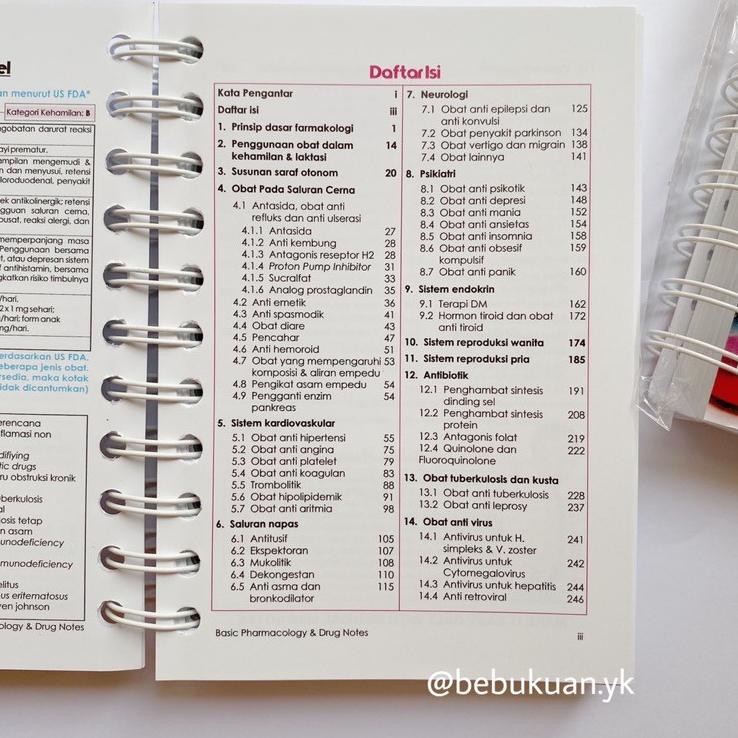 el
an menurut US FDA*
Kategori Kehamilan: B
ngobatan darurat reaksi
ayi prematur.
ampilan mengemudi &
n dan menyusui, retensi
loroduodenal, penyakit
ek antikolinergik; retensi
gguan saluran cerna,
pusat, reaksi alergi, dan
memperpanjang masa
Penggunaan bersama
t, atau depresan sistem
f antihistamin, bersama
gkatkan risiko timbulnya
/hari.
2 x 1 mg sehari;
g/hari; form anak
mg/hari.
erdasarkan US FDA.
beberapa jenis obat.
ersedia, maka kotak
tidak dicantumkan)
erencana
flamasi non
difiying
tic drugs
ru obstruksi kronik
berkulosis
al
losis tetap
n asam
unodeficiency
munodeficiency
elitus
us eritematosus
ven johnson
ology & Drug Notes
Daftar Isi
Kata Pengantar i
Daftar isi iii
1. Prinsip dasar farmakologi 1
2. Penggunaan obat dalam 14
kehamilan & laktasi
3. Susunan saraf otonom 20
4. Obat Pada Saluran Cerna
4.1 Antasida, obat anti
refluks dan anti ulserasi
4.1.1 Antasida 27
4.1.2 Anti kembung 28
4.1.3 Antagonis reseptor H2 28
4.1.4 Proton Pump Inhibitor 31
4.1.5 Sucralfat 33
4.1.6 Analog prostaglandin 35
4.2 Anti emetik 36
4.3 Anti spasmodik 41
4.4 Obat diare 43
4.5 Pencahar 47
4.6 Anti hemoroid 51
4.7 Obat yang mempengaruhi 53
komposisi & aliran empedu
4.8 Pengikat asam empedu 54
4.9 Pengganti enzim 54
pankreas
5. Sistem kardiovaskular
5.1 Obat anti hipertensi 55
5.2 Obat anti angina 75
5.3 Obat anti platelet 79
5.4 Obat anti koagulan 83
5.5 Trombolitik 88
5.6 Obat hipolipidemik 91
5.7 Obat anti aritmia 98
6. Saluran napas
6.1 Antitusif 105
6.2 Ekspektoran 107
6.3 Mukolitik 108
6.4 Dekongestan 110
6.5 Anti asma dan 115
bronkodilator
7. Neurologi
7.1 Obat anti epilepsi dan 125
anti konvulsi
7.2 Obat penyakit parkinson 134
7.3 Obat vertigo dan migrain 138
7.4 Obat lainnya 141
8. Psikiatri
8.1 Obat anti psikotik 143
8.2 Obat anti depresi 148
8.3 Obat anti mania 152
8.4 Obat anti ansietas 154
8.5 Obat anti insomnia 158
8.6 Obat anti obsesif 159
kompulsif
8.7 Obat anti panik 160
9. Sistem endokrin
9.1 Terapi DM 162
9.2 Hormon tiroid dan obat 172
anti tiroid
10. Sistem reproduksi wanita 174
11. Sistem reproduksi pria 185
12. Antibiotik
12.1 Penghambat sintesis 191
dinding sel
12.2 Penghambat sintesis 208
protein
12.3 Antagonis folat 219
12.4 Quinolone dan 222
Fluoroquinolone
13. Obat tuberkulosis dan kusta
13.1 Obat anti tuberkulosis 228
13.2 Obat anti leprosy 237
14. Obat anti virus
14.1 Antivirus untuk H. 241
simpleks & V. zoster
14.2 Antivirus untuk 242
Cytomegalovirus
14.3 Antivirus untuk hepatitis 244
14.4 Anti retroviral 246
Basic Pharmacology & Drug Notes iii
@bebukuan.yk